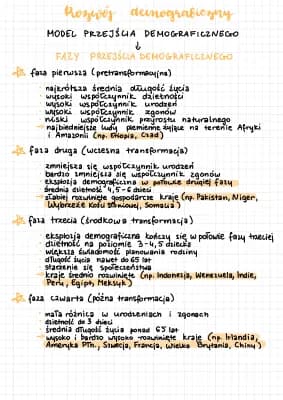 Rozwój demograficzny
MODEL PRZEJŚCIA DEMOGRAFICZNEGO
↓
FAZY PRZEJŚCIA DEMOGRAFICZNEGO
faza pierwsza (pretransformacyjna)
- najkrótsza średnia długość życia
- wysoki współczynnik dzietności
- wysoki współczynnik urodzeń
- wysoki współczynnik zgonów
- niski współczynnik przyrostu naturalnego
- najbiedniejsze ludy plemienne żyjące na terenie Afryki
i Amazonii (np. Etiopia, Czad)
faza druga (wczesna transformacja)
- zmniejsza się współczynnik urodzeń
- bardzo zmniejsza się współczynnik zgonów
- eksplozja demograficzna w połowie drugiej fazy
- średnia dzietność 4,5-6 dzieci
- słabiej rozwinięte gospodarczo kraje (np. Pakistan, Niger,
Wybrzeże Kości Słoniowej, Somalia)
faza trzecia (środkowa transformacja)
- eksplozja demograficzna kończy się w połowie fazy trzeciej
- dzietność na poziomie 3-4,5 dziecka
- większa świadomość planowania rodziny
- długość życia nawet do 65 lat
- starzenie się społeczeństwa
- kraje średnio rozwinięte (np. Indonezja, Wenezuela, Indie,
Peru, Egipt, Meksyk)
faza czwarta (późna transformacja)
- mała różnica w urodzeniach i zgonach
- dzietność do 3 dzieci
- średnia długość życia ponad 65 lat
- wysoko i bardzo wysoko rozwinięte kraje (np. Irlandia,
Ameryka Płn., Szwecja, Francja, Wielka Brytania, Chiny)